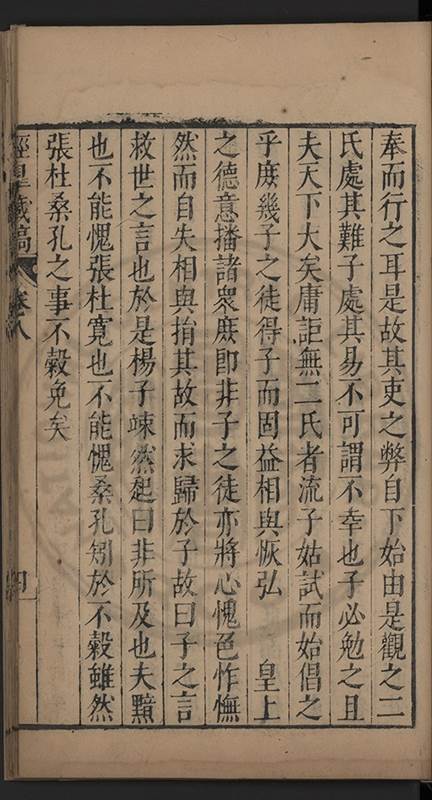 奉而行之耳是故其吏之弊自下始由是觀之二
氏處其難子處其易不可謂不幸也子必勉之且
夫天下大矣庸詎無二氏者流子姑試而始倡之
乎庶幾子之徒得子而固益相與恢弘　皇上
之德意播諸衆庶卽非子之徒亦將心愧色怍憮
然而自失相與捐其故而求歸於子故曰子之言
救世之言也於是楊子竦然起曰非所及也夫黯
也不能愧張杜寬也不能愧桑孔矧於不穀雖然
張杜桑孔之事不穀免矣
經皐藏稿　卷八　四